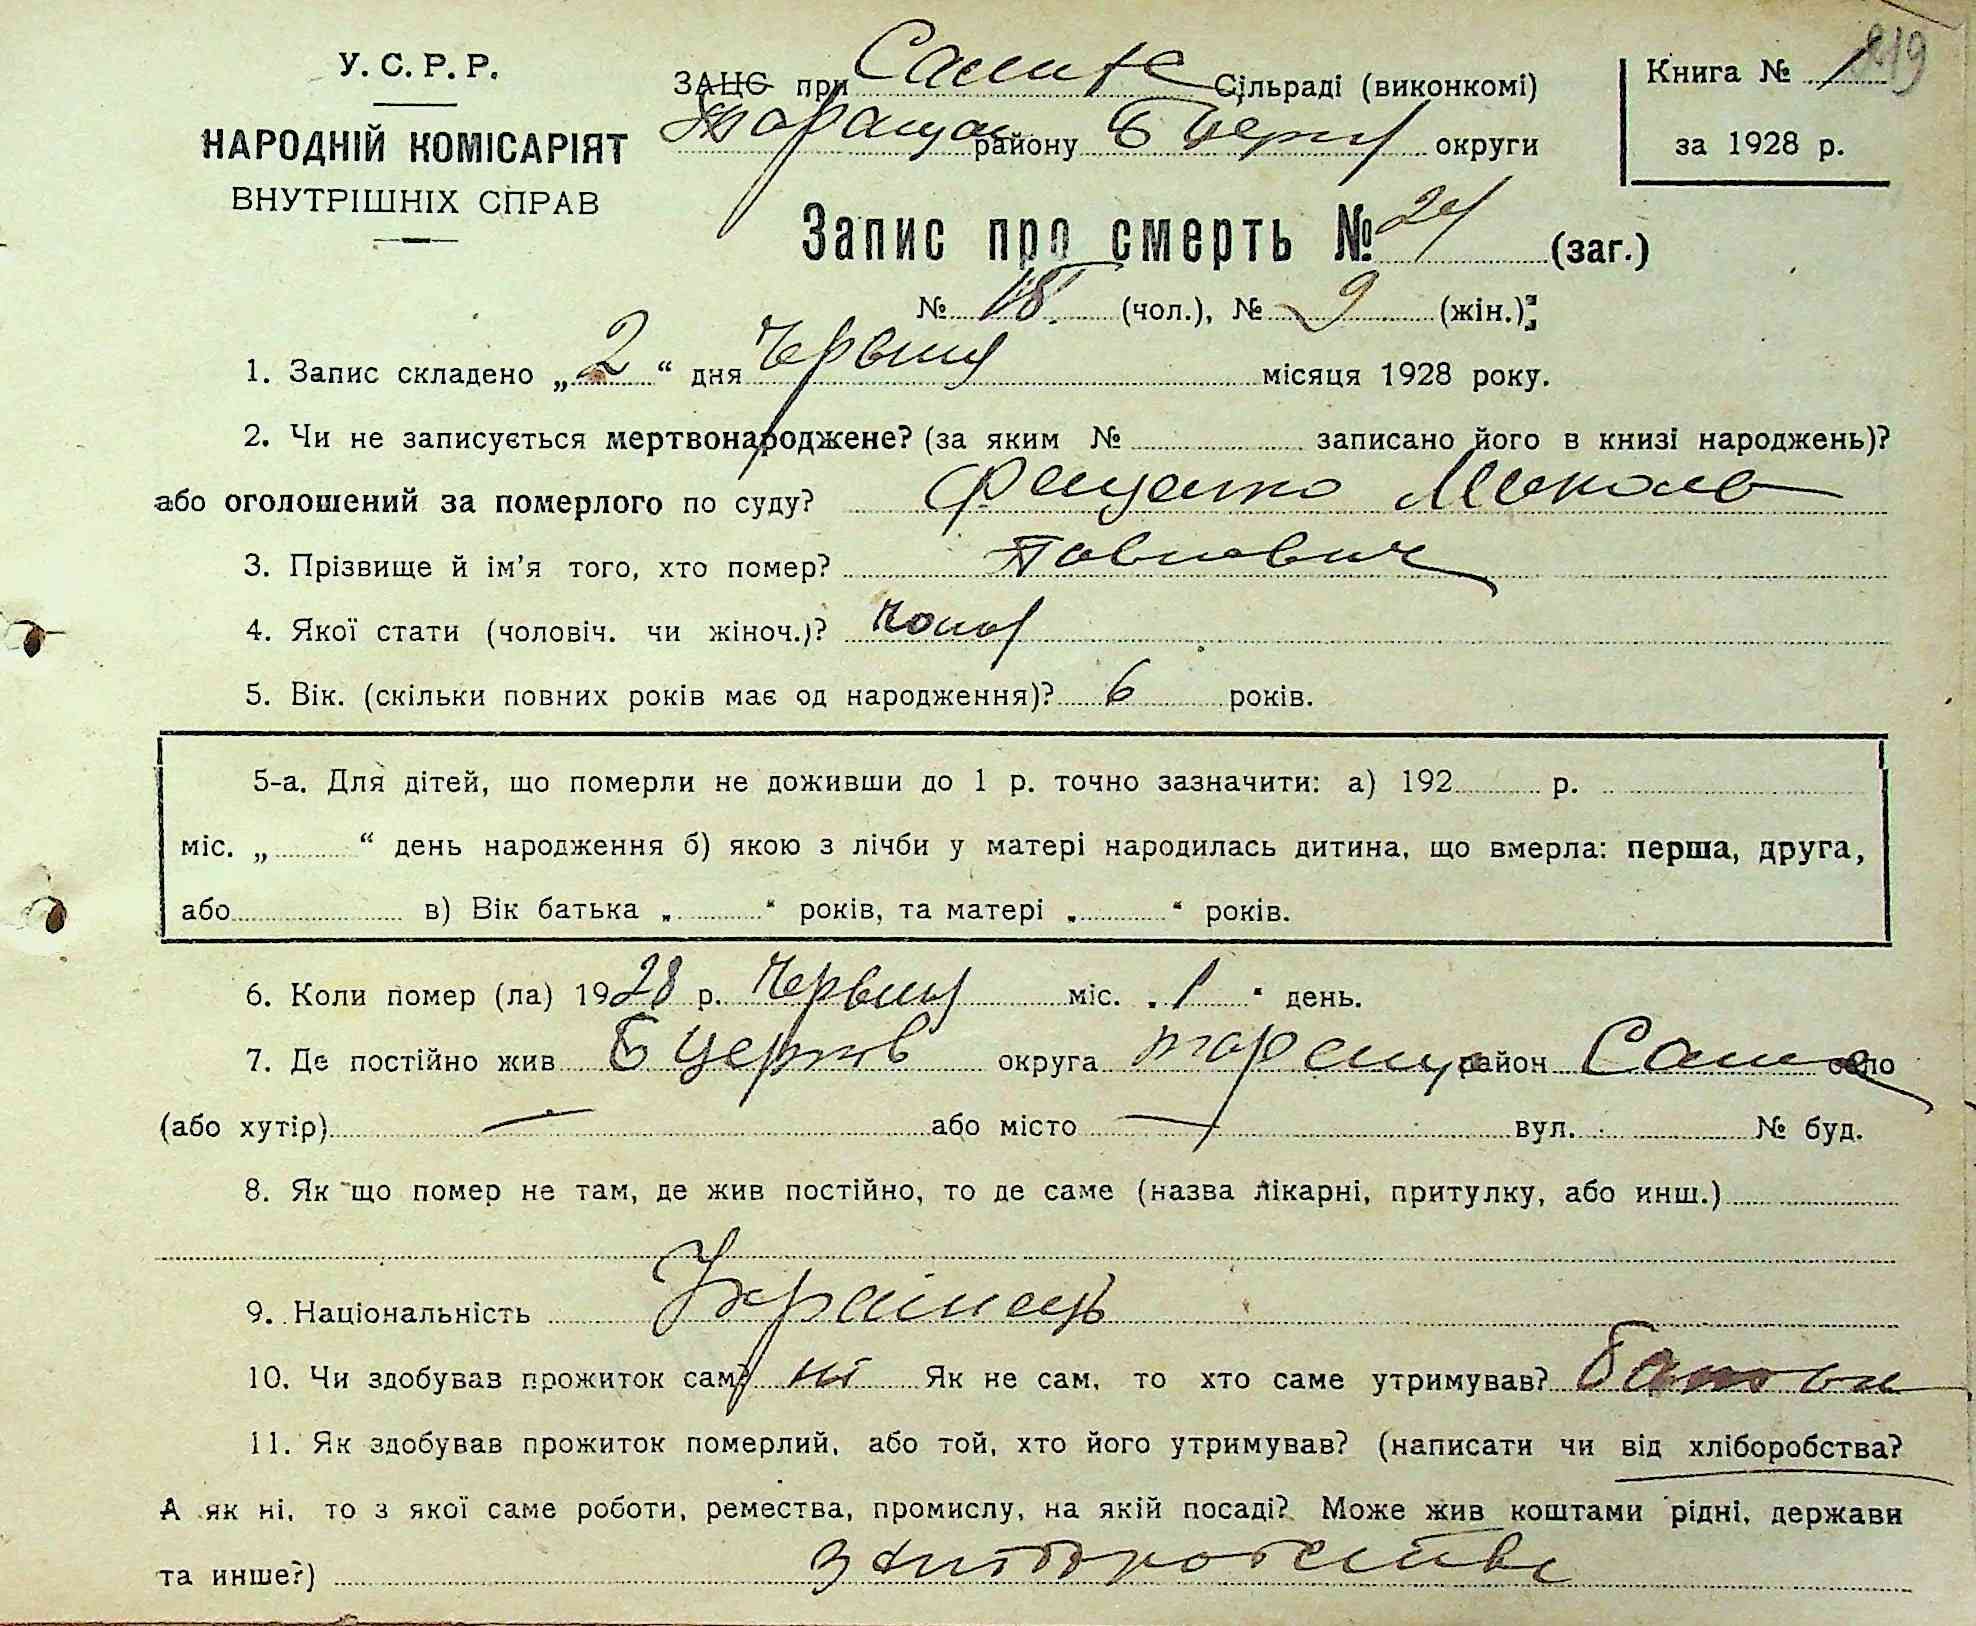 У. С. Р. Р.
НАРОДНІЙ КОМІСАРІЯТ
ВНУТРІШНІХ СПРАВ
ЗАЦС при Сільраді (виконкомі)
району Б Церк округи
Книга № 1 219
за 1928 р.
Запис про смерть № 24 (заг.)
№ 15 (чол.), № 9 (жін.)
1. Запис складено „ 2 “ дня Червня місяця 1928 року.
2. Чи не записується мертвонароджене? (за яким № записано його в книзі народжень)?
або оголошений за померлого по суду? Микола
3. Прізвище й ім'я того, хто помер? Павлович
4. Якої стати (чоловіч. чи жіноч.)? чолов
5. Вік. (скільки повних років має од народження)? 6 років.
5-а. Для дітей, що померли не доживши до 1 р. точно зазначити: а) 192 р.
міс. „ “ день народження б) якою з лічби у матері народилась дитина, що вмерла: перша, друга,
або в) Вік батька „ “ років, та матері „ “ років.
6. Коли помер (ла) 1928 р. Червня міс. „ 1 “ день.
7. Де постійно жив Б Церків округа Тараща район село
(або хутір) — або місто — вул. № буд.
8. Як що помер не там, де жив постійно, то де саме (назва лікарні, притулку, або инш.)
9. Національність Українець
10. Чи здобував прожиток сам? ні Як не сам, то хто саме утримував? батьки
11. Як здобував прожиток померлий, або той, хто його утримував? (написати чи від хліборобства?
А як ні, то з якої саме роботи, ремества, промислу, на якій посаді? Може жив коштами рідні, держави
та инше?) з хліборобства